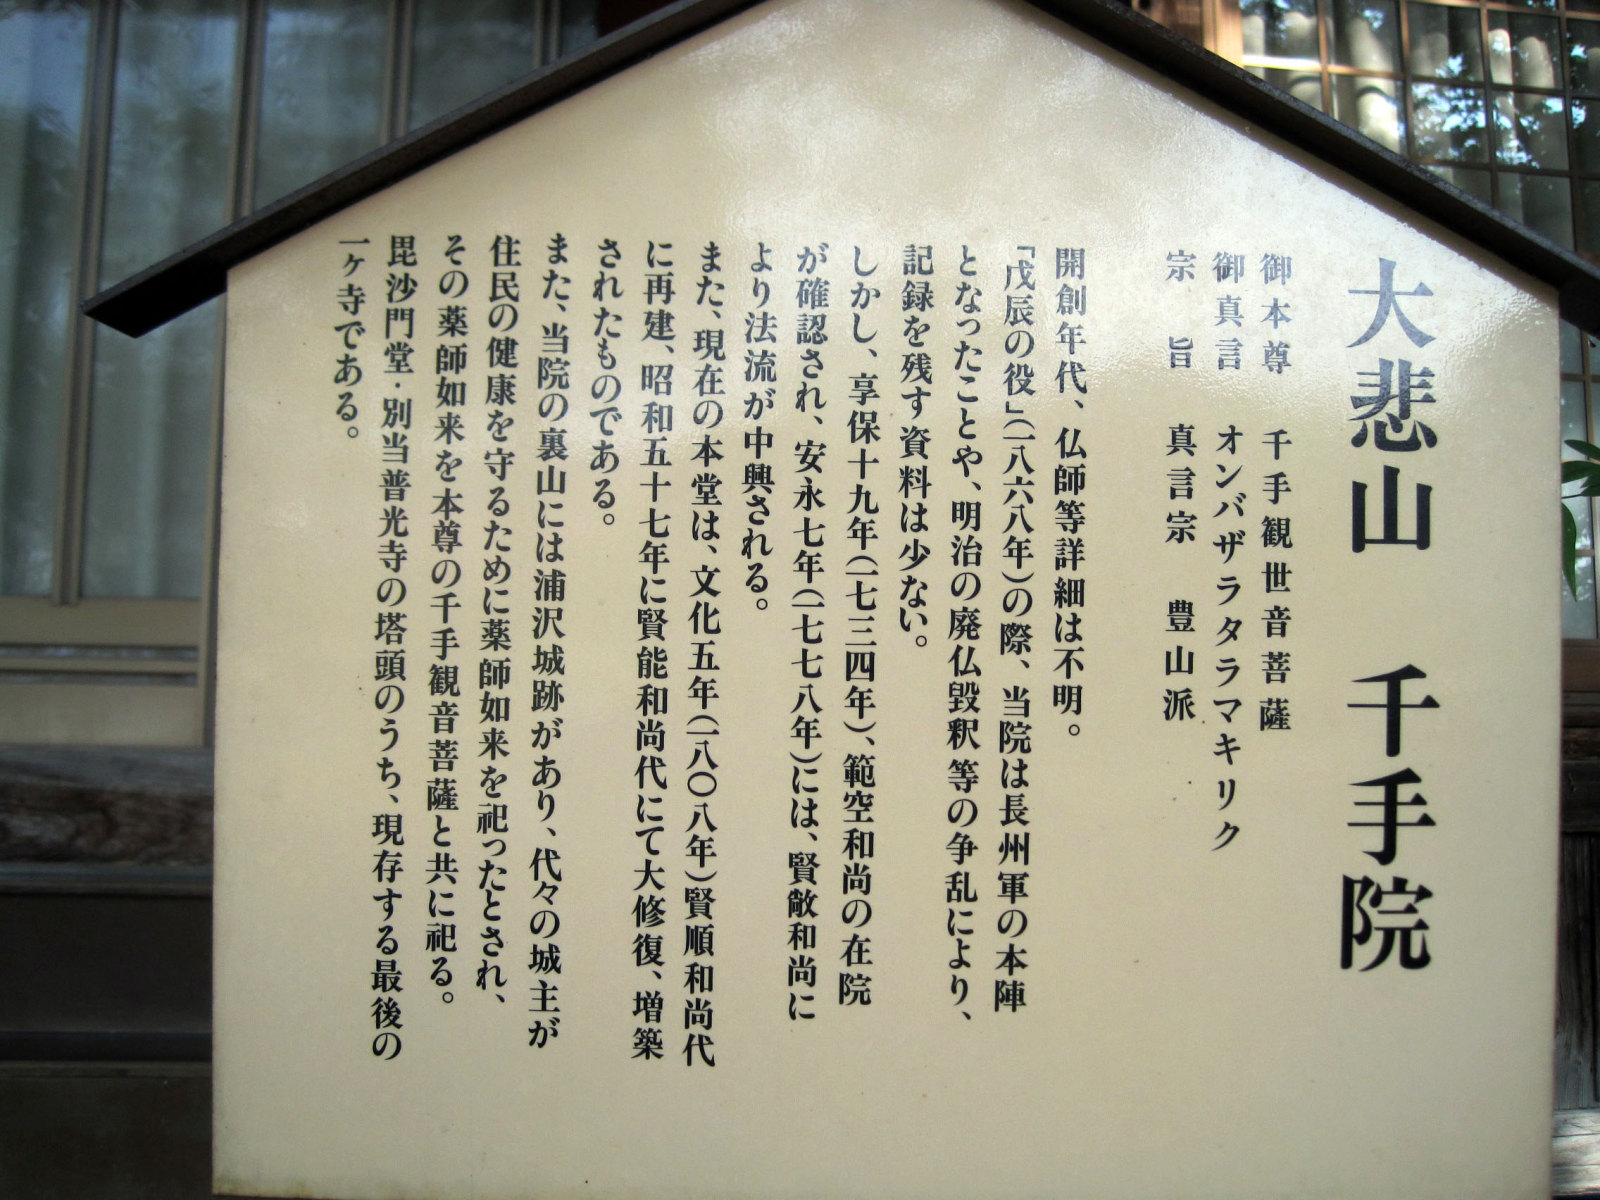 大悲山　千手院
御本尊　千手観世音菩薩
御真言　オンバザラタラマキリク
宗　旨　真言宗　豊山派
開創年代、仏師等詳細は不明。
「戊辰の役」（一八六八年）の際、当院は長州軍の本陣
となったことや、明治の廃仏毀釈等の争乱により、
記録を残す資料は少ない。
しかし、享保十九年（一七三四年）、範空和尚の在院
が確認され、安永七年（一七七八年）には、賢敞和尚に
より法流が中興される。
また、現在の本堂は、文化五年（一八〇八年）賢順和尚代
に再建、昭和五十七年に賢能和尚代にて大修復、増築
されたものである。
また、当院の裏山には浦沢城跡があり、代々の城主が
住民の健康を守るために薬師如来を祀ったとされ、
その薬師如来を本尊の千手観音菩薩と共に祀る。
毘沙門堂・別当普光寺の塔頭のうち、現存する最後の
一ヶ寺である。